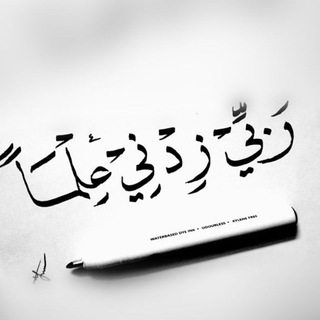 رَبِّي زِدْنِي عِلْمَاً
WATERBASED DYE INK • ODOURLESS • XYLENE FREE